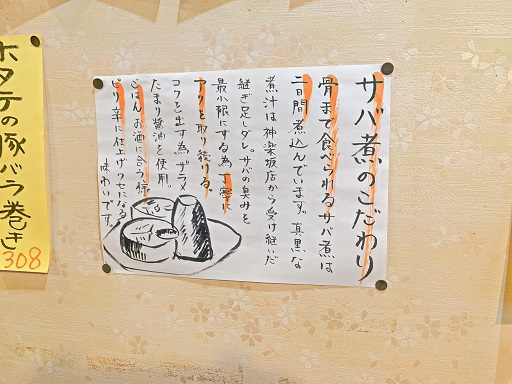 サバ煮のこだわり
骨まで食べられるサバ煮は
二日間煮込んでいます。真黒な
煮汁は神楽坂店から受け継いだ
継ぎ足しダレ。サバの臭みを
最小限にする為、丁寧に
アクを取り続ける。
コクを出す為、ザラメ
たまり醤油を使用。
ごはん、お酒に合う様、
ピリ辛に仕上げクセになる
味わいです。
ホタテの豚バラ巻き
308